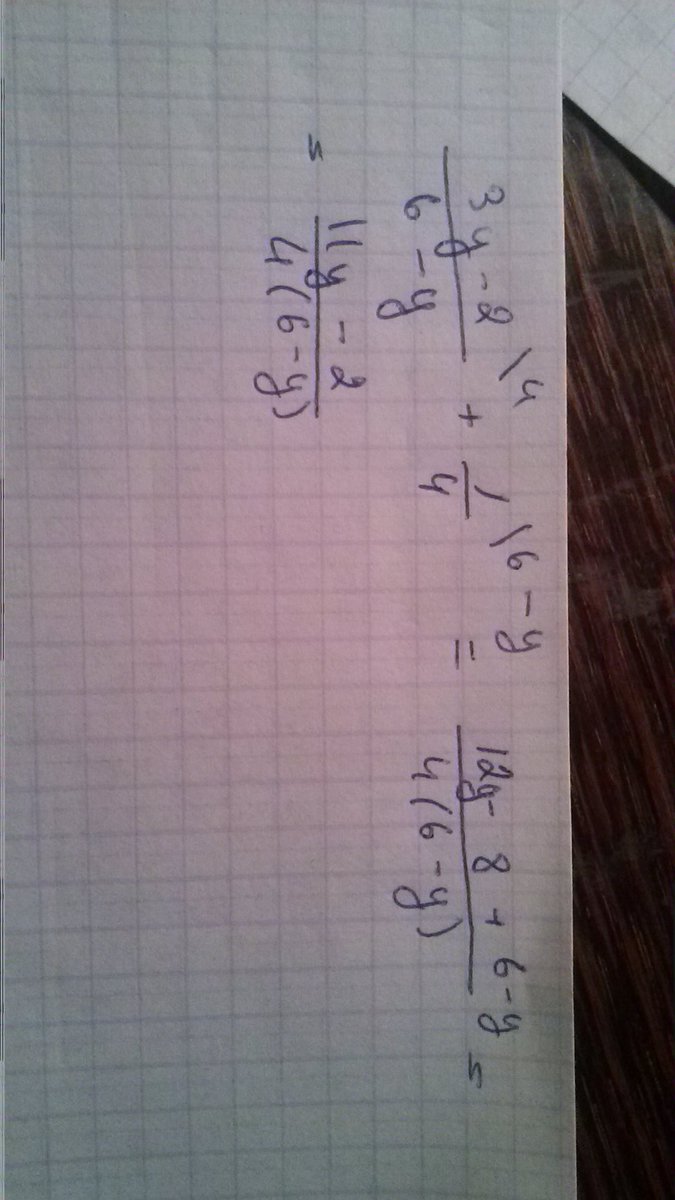 3y-2\4 / 6-y + 1\6-y / 4 = 12y-8+6-y / 4(6-y) =
= 11y-2 / 4(6-y)